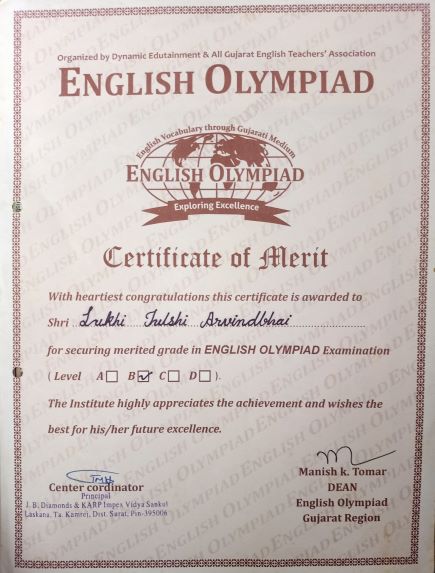 Organized by Dynamic Edutainment & All Gujarat English Teachers' Association
ENGLISH OLYMPIAD
English Vocabulary through Gujarati Medium
ENGLISH OLYMPIAD
Exploring Excellence
Certificate of Merit
With heartiest congratulations this certificate is awarded to
Shri Lukhi Tulshi Arvindbhai
for securing merited grade in ENGLISH OLYMPIAD Examination
( Level A☐ B☑ C☐ D☐ ).
The Institute highly appreciates the achievement and wishes the
best for his/her future excellence.
Center cordinator
Principal
J. B. Diamonds & KARP Impex Vidya Sankul
Laskana, Ta. Kamrej, Dist. Surat, Pin-395006
Manish k. Tomar
DEAN
English Olympiad
Gujarat Region